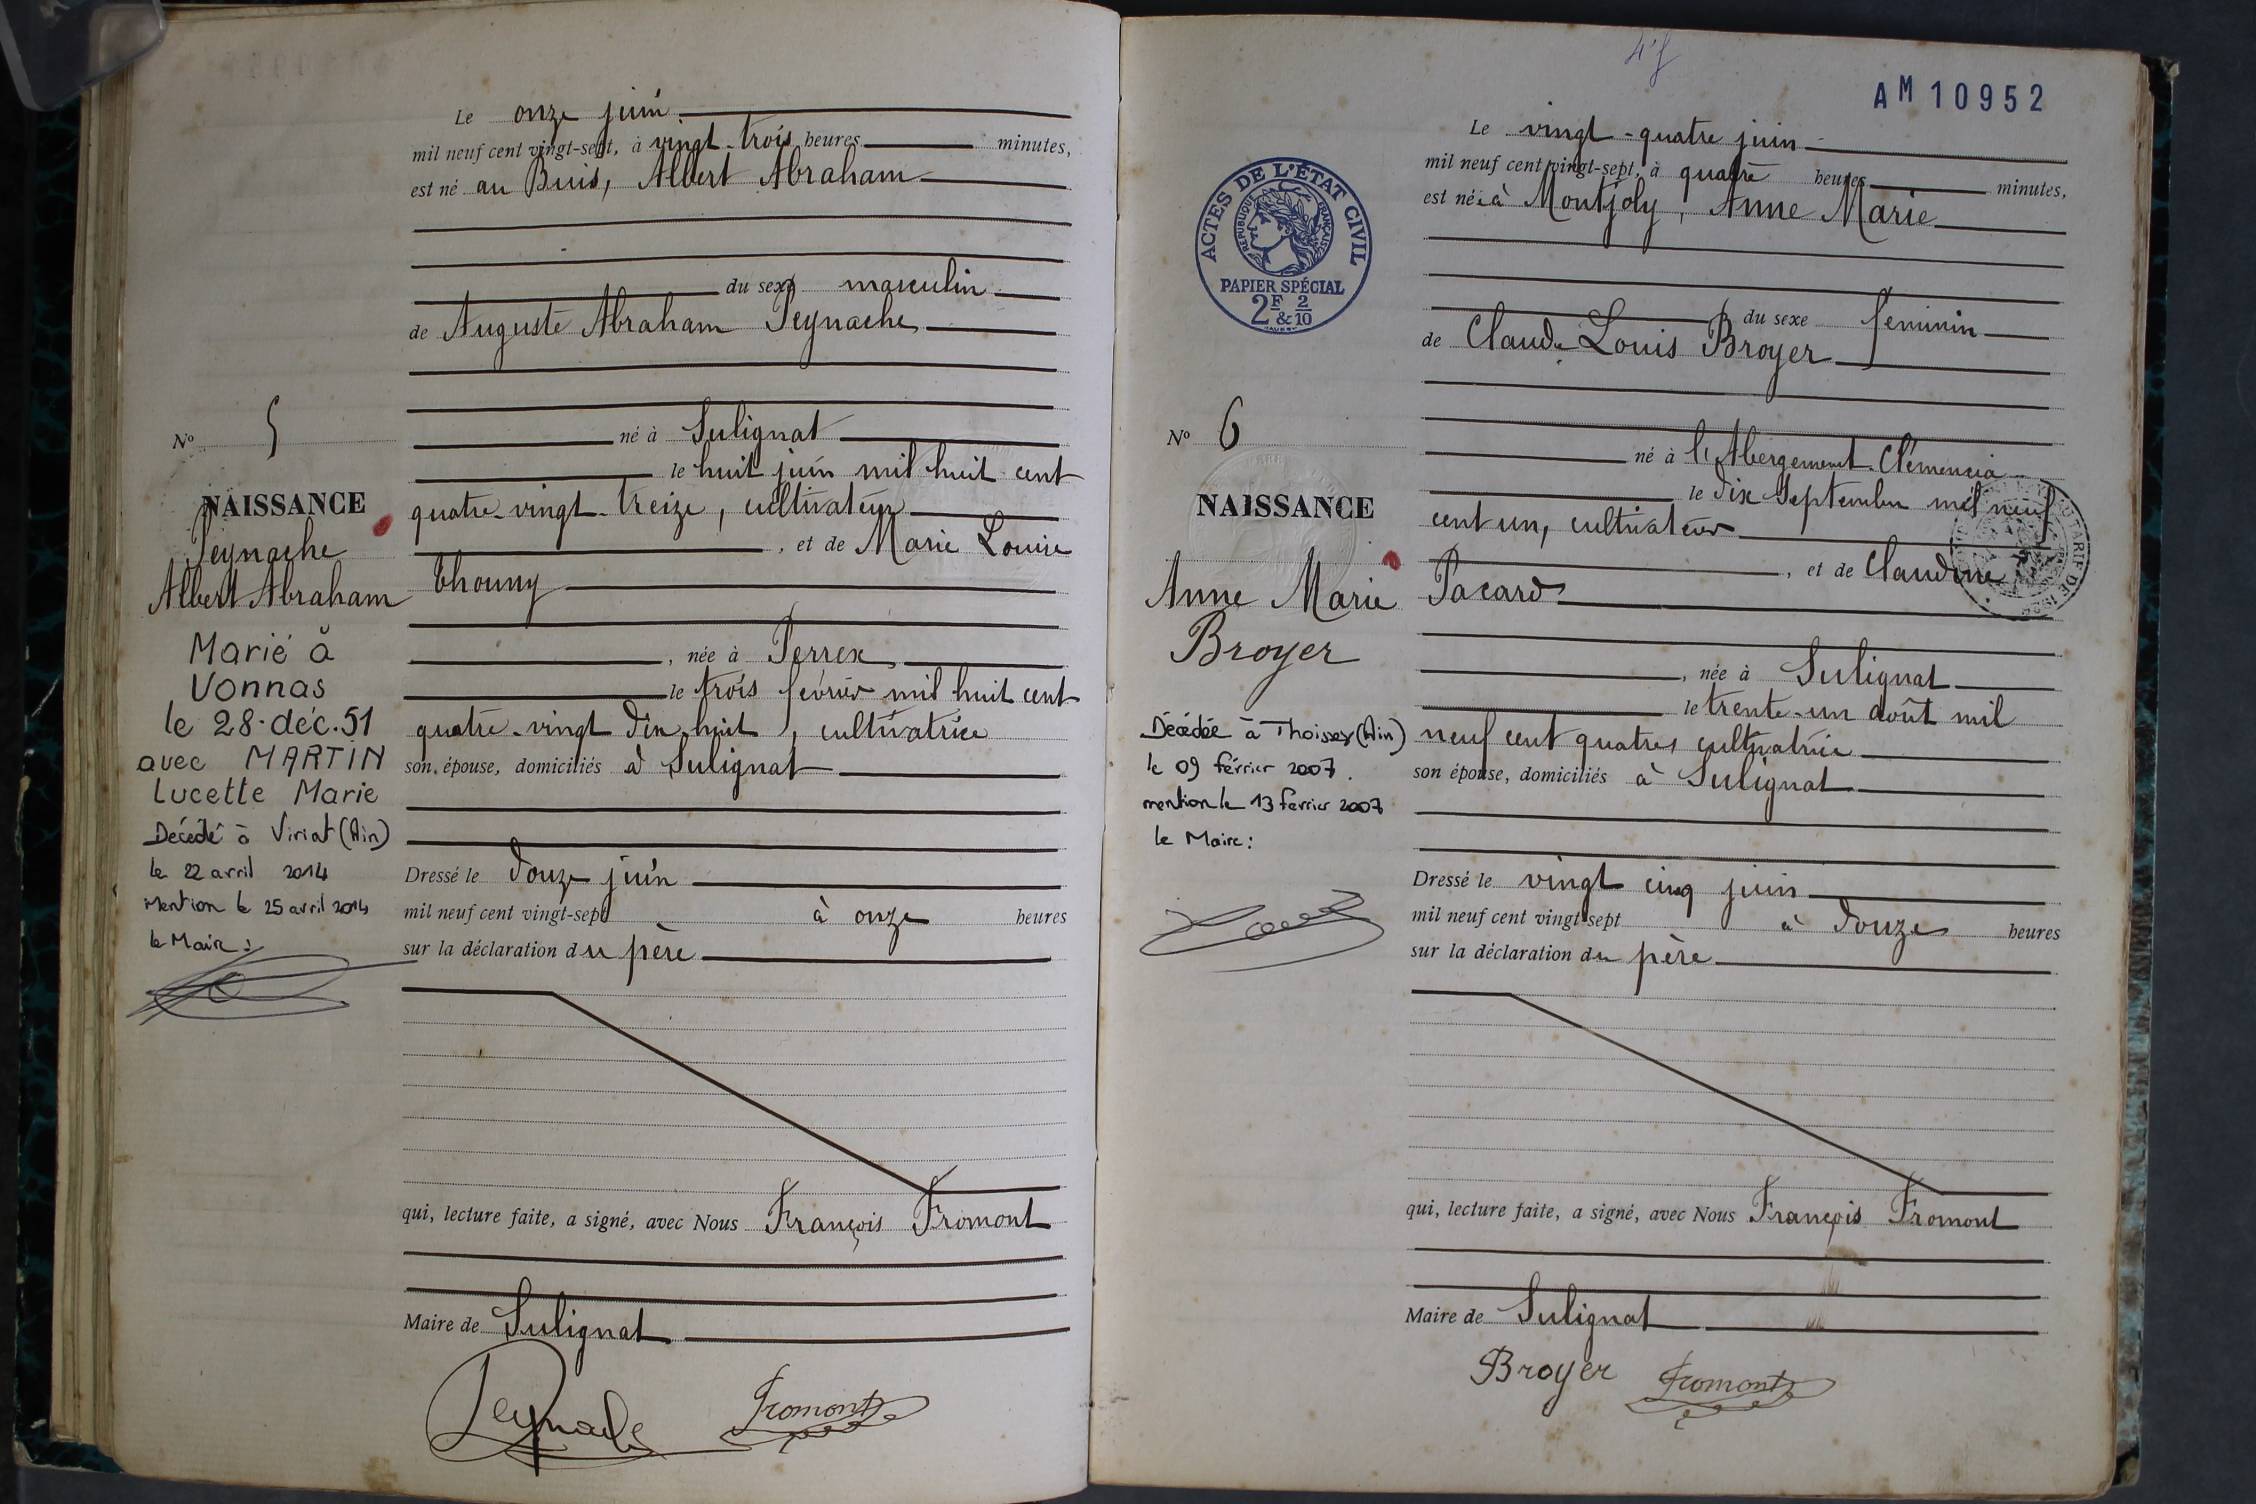 Le onze juin
mil neuf cent vingt-sept, à vingt-trois heures minutes,
est né au Buis, Albert Abraham
du sexe masculin
de Auguste Abraham Peynache
né à Sulignat
le huit juin mil huit cent
quatre-vingt-treize, cultivateur
, et de Marie Louise
Thouny
, née à Perrex
le trois février mil huit cent
quatre-vingt dix huit, cultivatrice
son épouse, domiciliés à Sulignat
Dressé le douze juin
mil neuf cent vingt-sept à onze heures
sur la déclaration du père
qui, lecture faite, a signé, avec Nous François Fromont
Maire de Sulignat
Peynache Fromont
No 5
NAISSANCE
Peynache
Albert Abraham
Marié à
Vonnas
le 28.déc.51
avec MARTIN
Lucette Marie
Décédé à Viriat (Ain)
le 22 avril 2014
Mention le 25 avril 2014
le Maire :
AM 10952
Le vingt-quatre juin
mil neuf cent vingt-sept, à quatre heures minutes,
est née à Montjoly, Anne Marie
du sexe féminin
de Claude Louis Broyer
né à l'Abergement-Clémencia
le dix Septembre mil neuf
cent un, cultivateur
, et de Claudine
Pacard
, née à Sulignat
le trente-un août mil
neuf cent quatre, cultivatrice
son épouse, domiciliés à Sulignat
Dressé le vingt cinq juin
mil neuf cent vingt-sept à douze heures
sur la déclaration du père
qui, lecture faite, a signé, avec Nous François Fromont
Maire de Sulignat
Broyer Fromont
ACTES DE L'ÉTAT CIVIL
RÉPUBLIQUE FRANÇAISE
PAPIER SPÉCIAL
2F & 2/10
No 6
NAISSANCE
Anne Marie
Broyer
Décédée à Thoissey (Ain)
le 09 février 2007.
mention le 13 février 2007
le Maire :